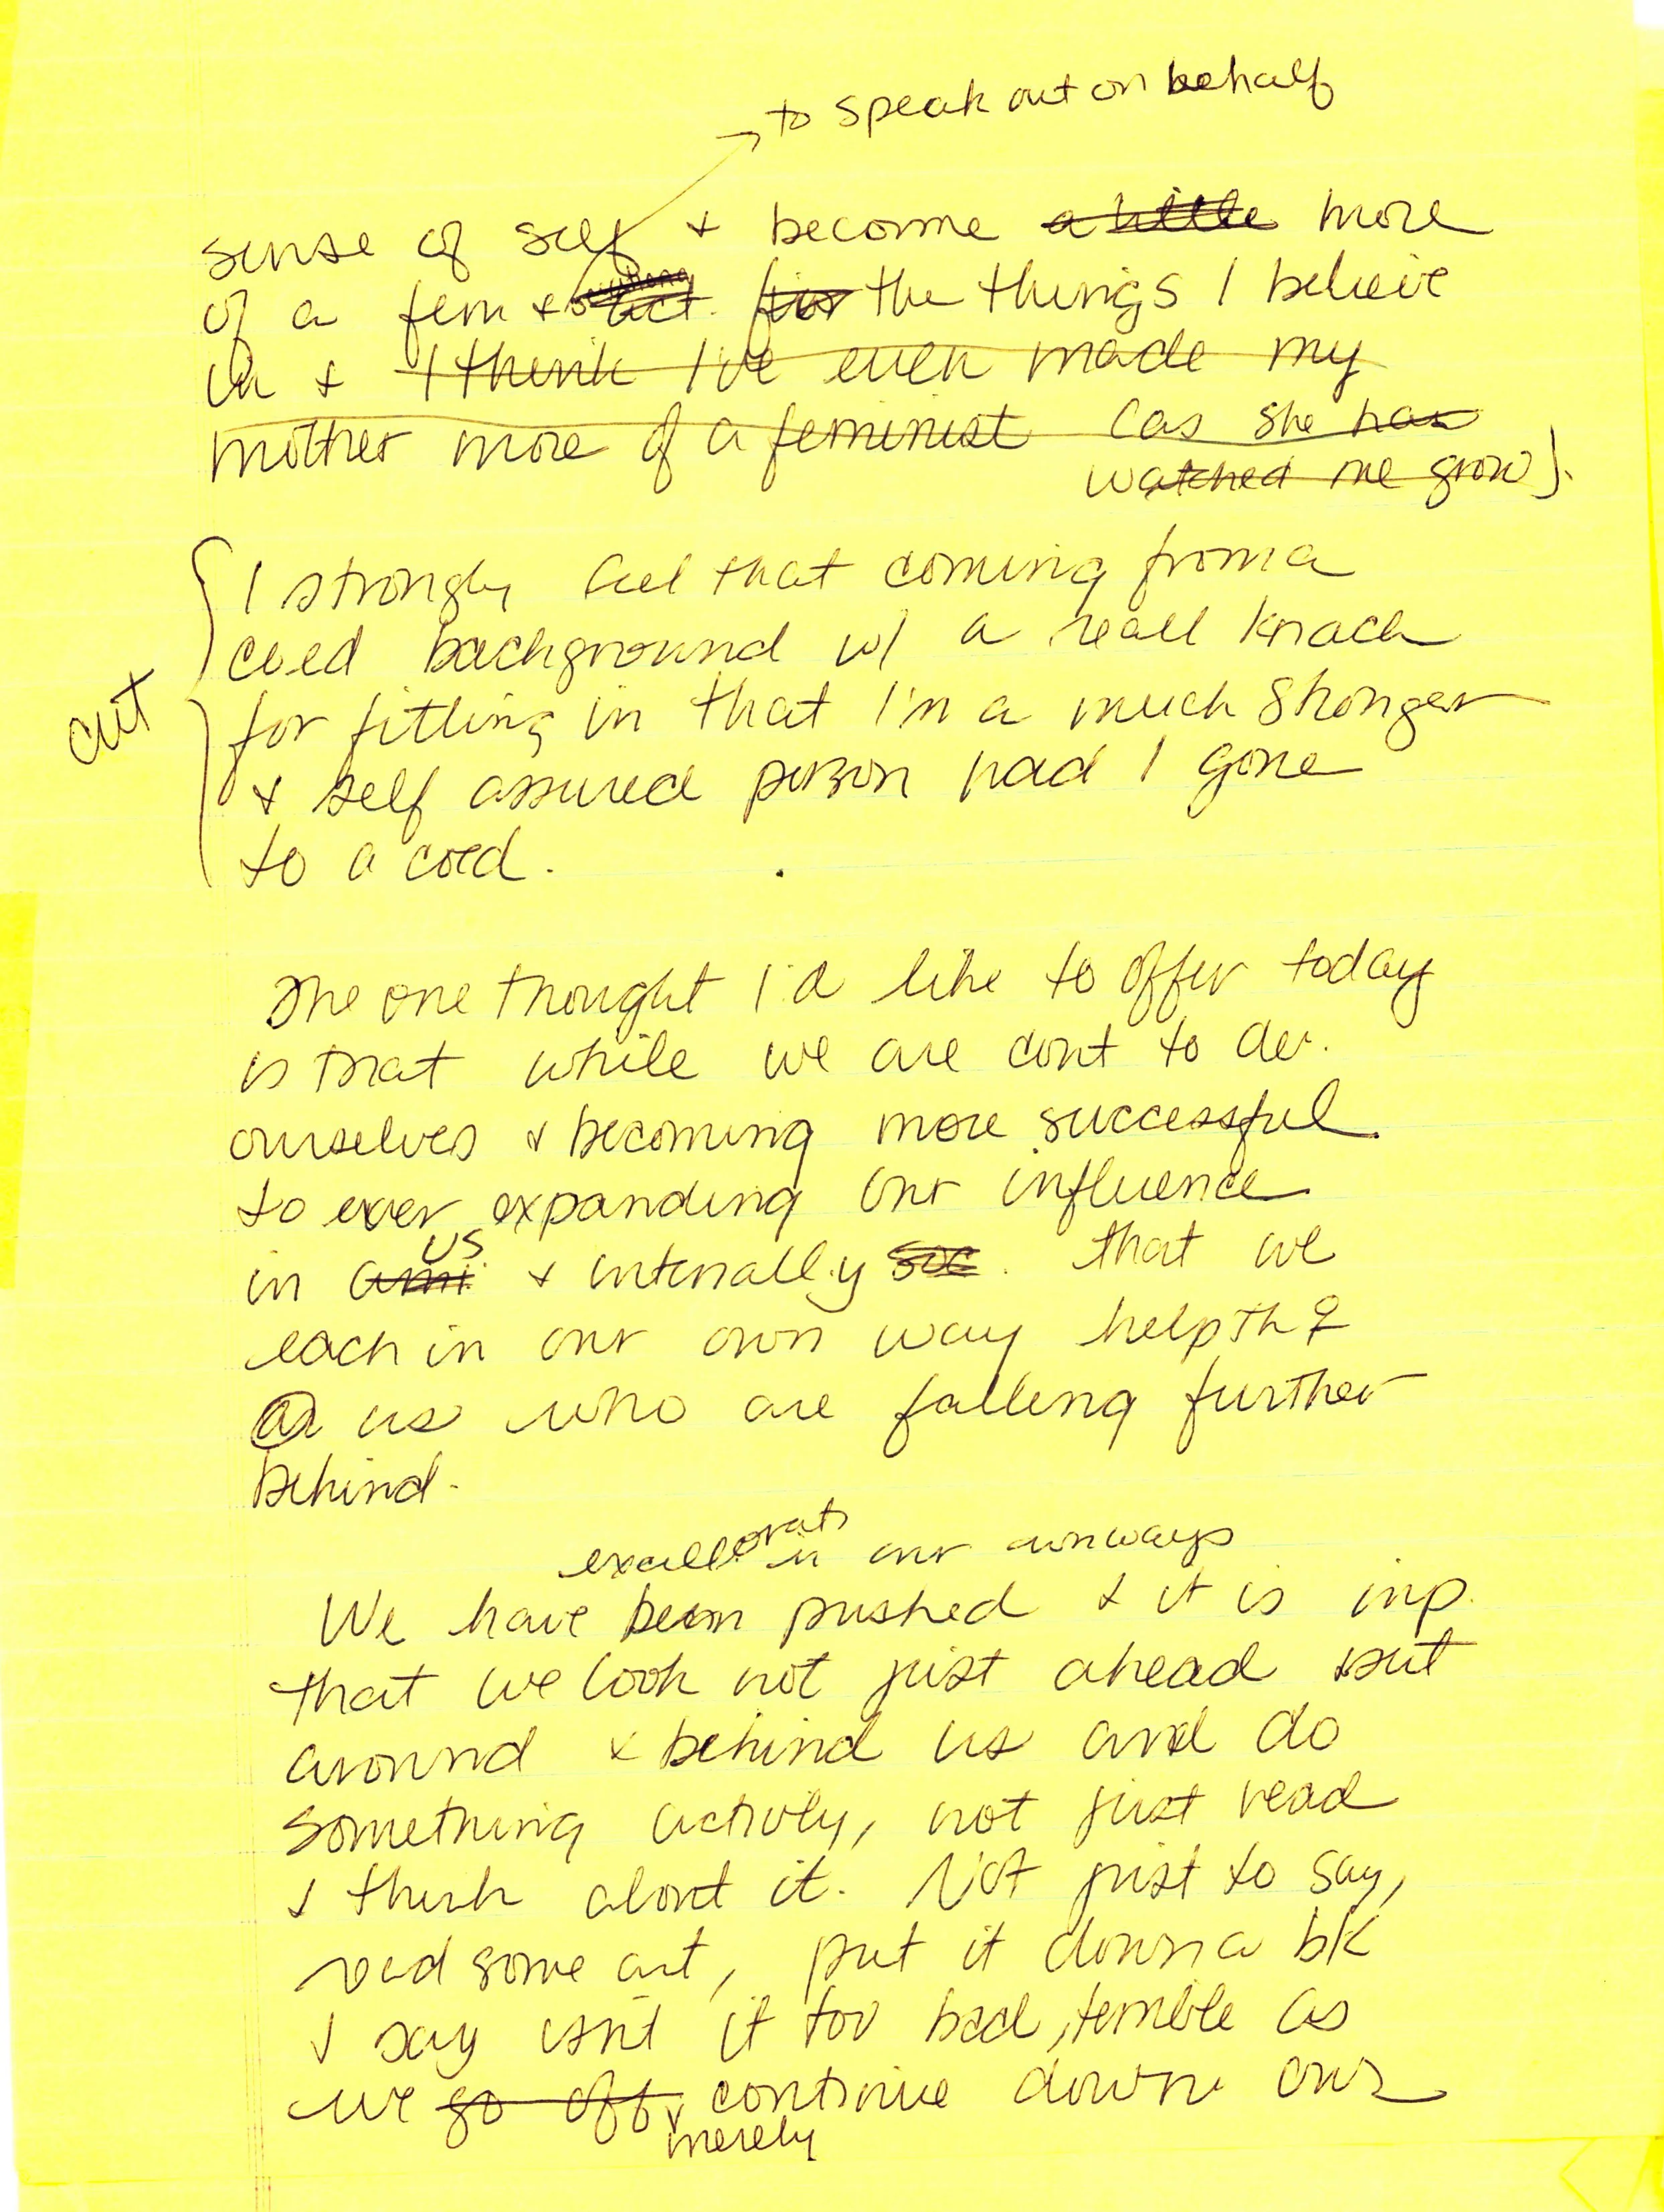 → to speak out on behalf
sense of self + become a little more
of a fem + act. for the things I believe
in + I think I've even made my
mother more of a feminist (as she has
watched me grow).
I strongly feel that coming from a
cut
coed background w/ a reall knack
for fitting in that I'm a much stronger
+ self assured person had I gone
to a coed.
The one thought I'd like to offer today
is that while we are cont to dev.
ourselves + becoming more successful
to ever expanding our influence
us
in + internally soc. that we
each in our own way help th ♀
us who are falling further
behind.
in our own ways
We have been pushed + it is imp.
that we look not just ahead but
around + behind us and do
something activly, not just read
+ think about it. Not just to say,
read some art, put it down a bk
+ say isnt it too bad, terrible as
we go off, continue down our
merely